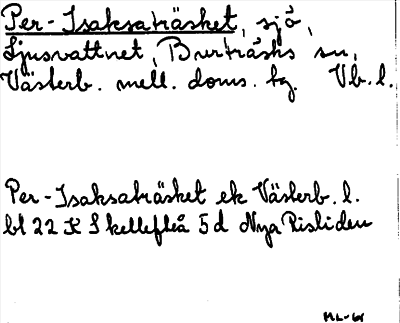 Per-Isaksaträsket, sjö,
Ljusvattnet, Burträsks sn,
Västerb. mell. doms. tg. Vb. l.
Per-Isaksaträsket ek Västerb. l.
bl 22 K Skellefteå 5d Nya Risliden
ML-61